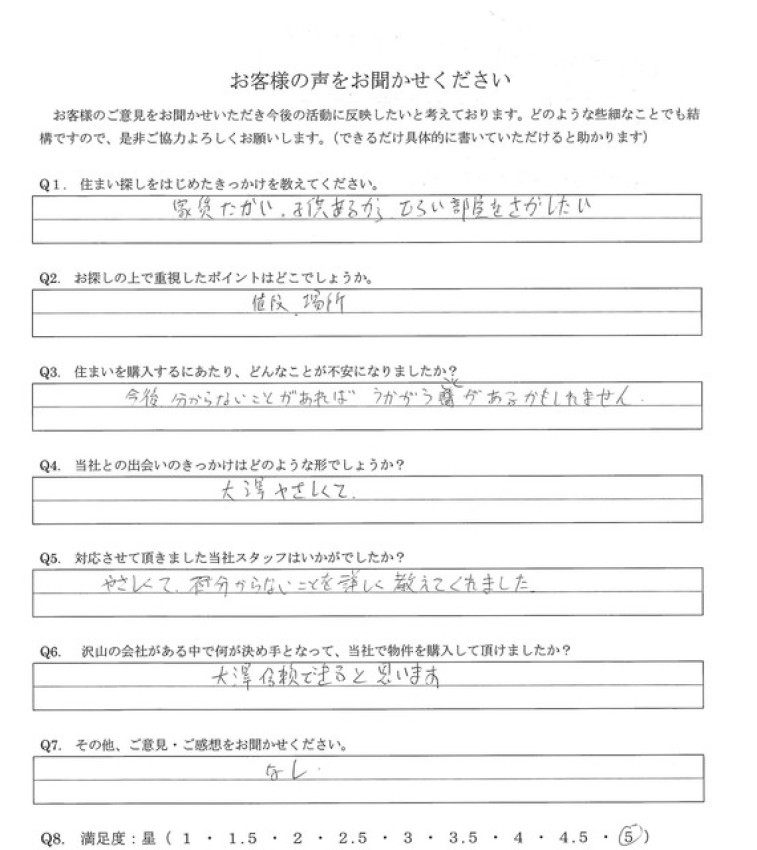 お客様の声をお聞かせください
お客様のご意見をお聞かせいただき今後の活動に反映したいと考えております。どのような些細なことでも結
構ですので、是非ご協力よろしくお願いします。（できるだけ具体的に書いていただけると助かります）
Q1. 住まい探しをはじめたきっかけを教えてください。
家賃たかい、子供あるから、ひろい部屋をさがしたい
Q2. お探しの上で重視したポイントはどこでしょうか。
値段、場所
Q3. 住まいを購入するにあたり、どんなことが不安になりましたか？
今後、分からないことがあれば うかがうことがあるかもしれません.
Q4. 当社との出会いのきっかけはどのような形でしょうか？
大澤やさしくて.
Q5. 対応させて頂きました当社スタッフはいかがでしたか？
やさしくて、分からないことを詳しく教えてくれました.
Q6. 沢山の会社がある中で何が決め手となって、当社で物件を購入して頂けましたか？
大澤信頼できると思います
Q7. その他、ご意見・ご感想をお聞かせください。
なし.
Q8. 満足度：星（ 1 ・ 1.5 ・ 2 ・ 2.5 ・ 3 ・ 3.5 ・ 4 ・ 4.5 ・ 5 ）